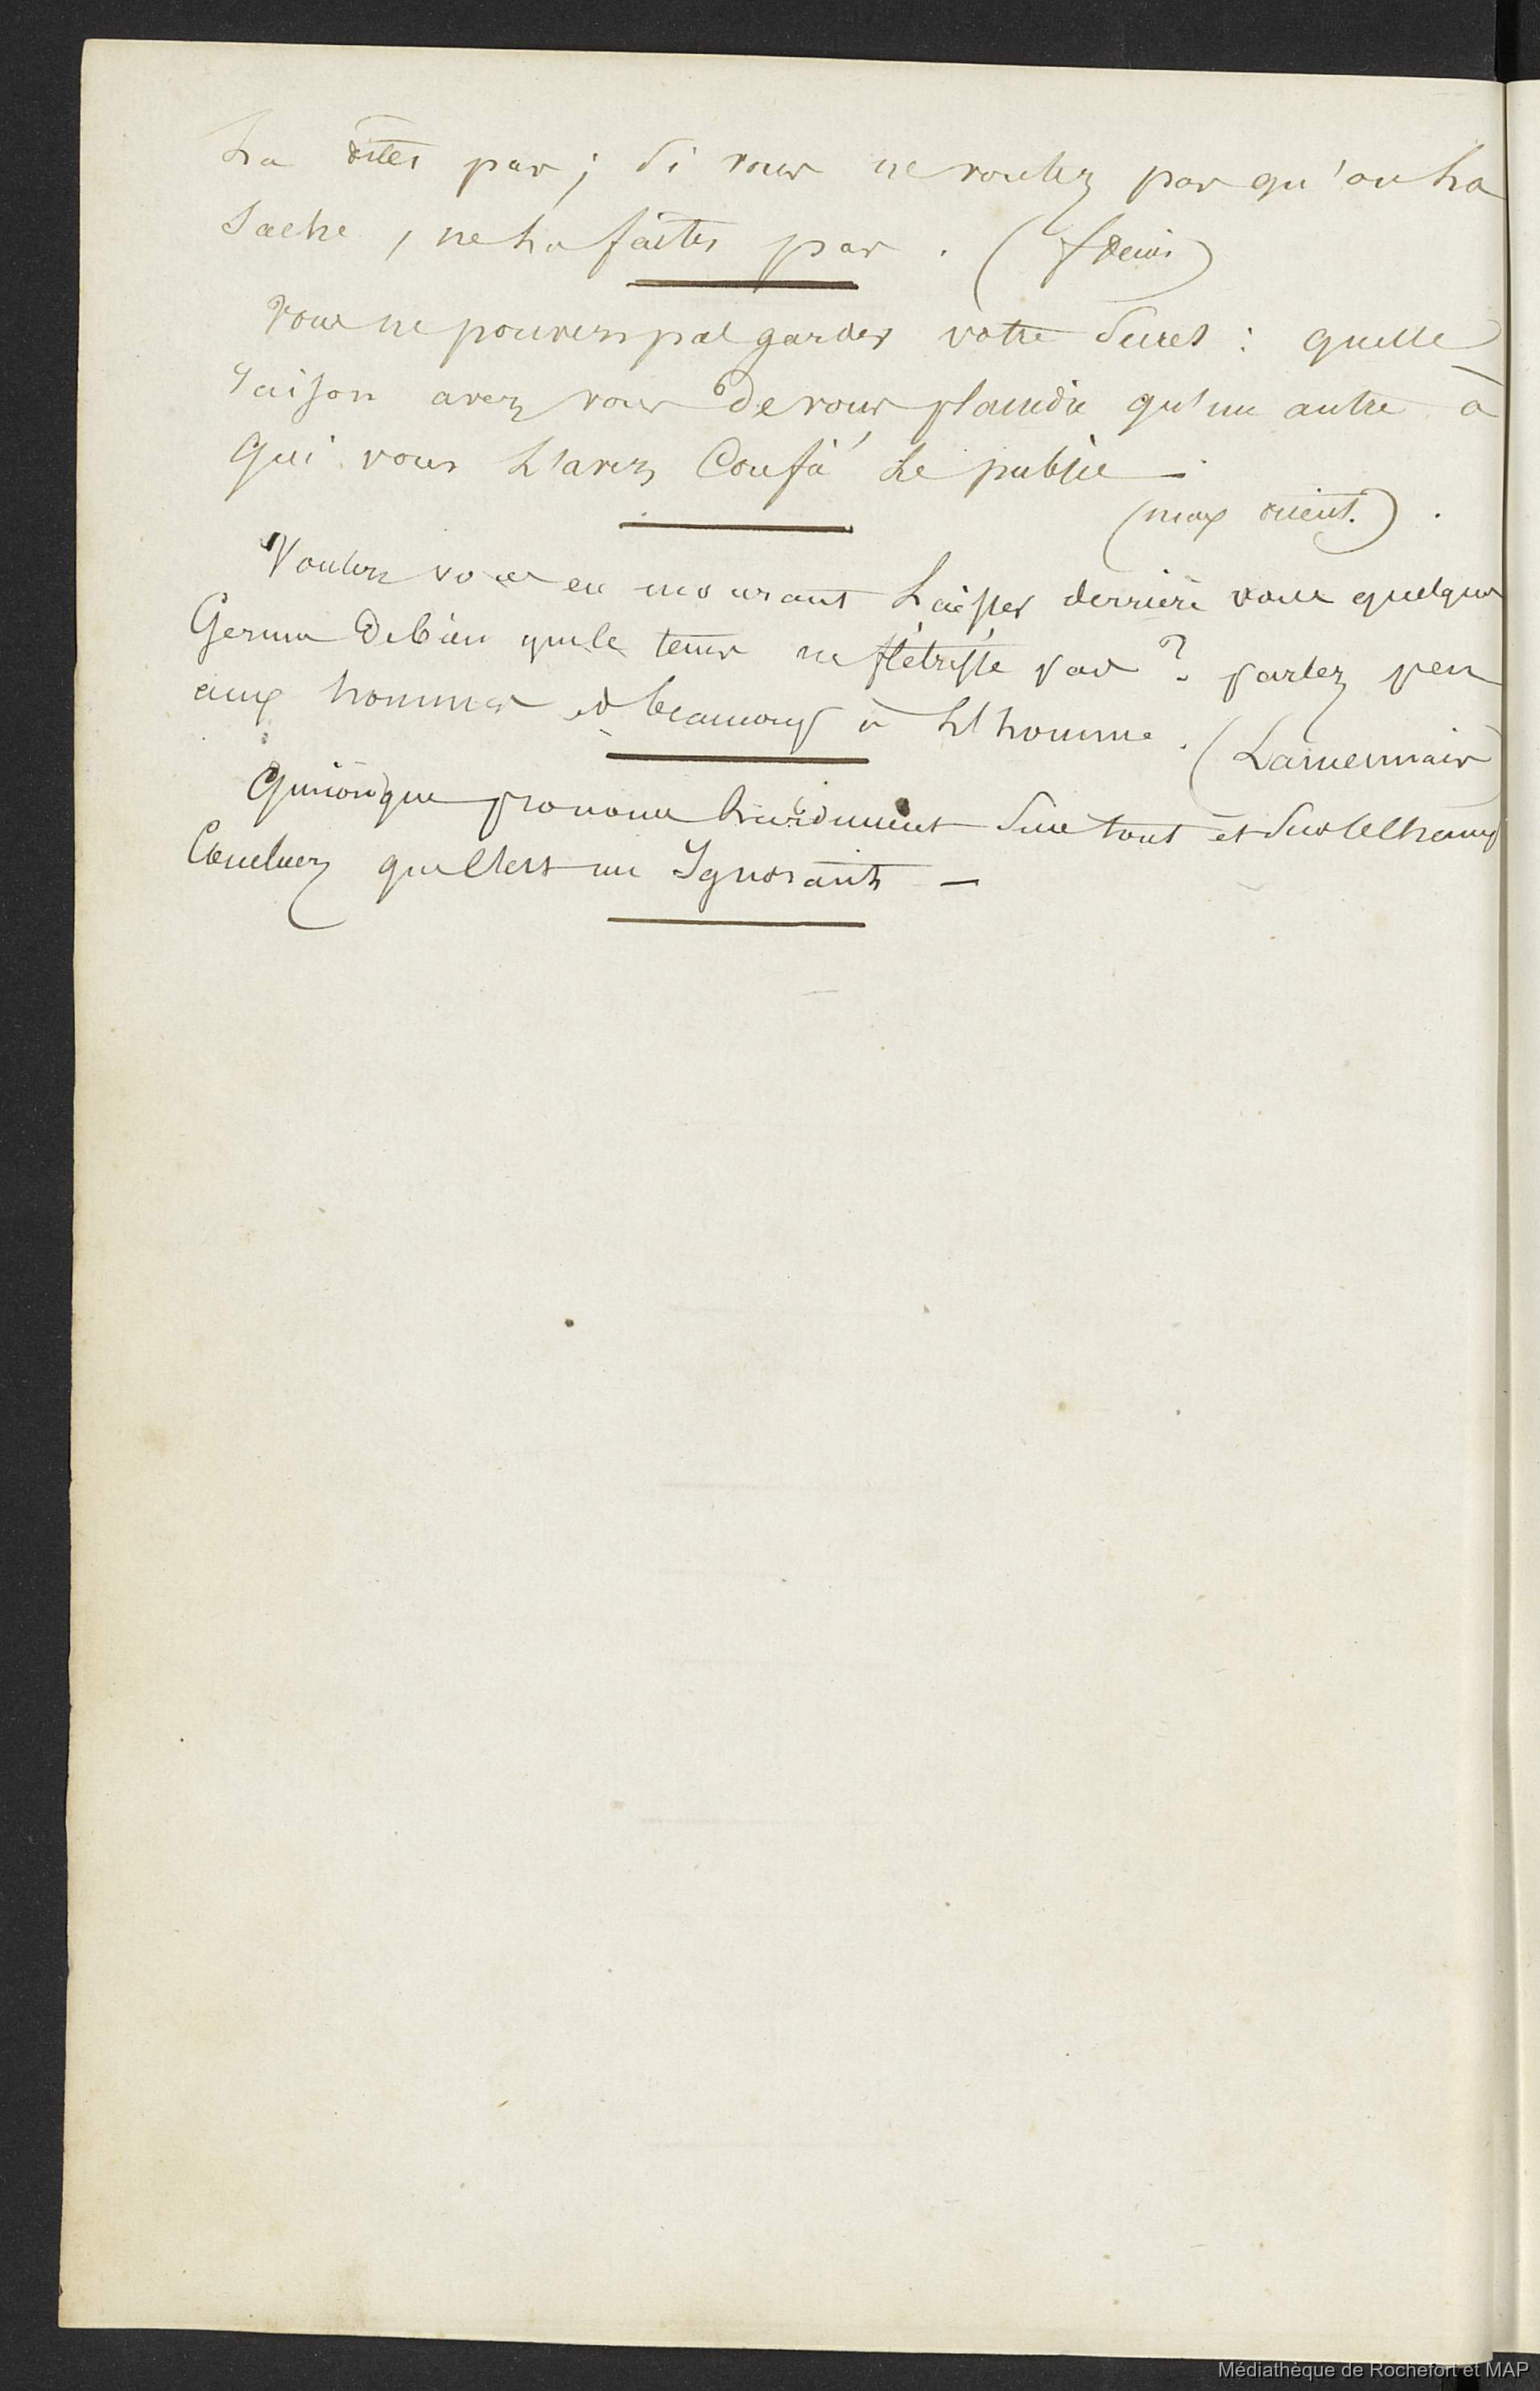 La dites pas ; Si vous ne voulez pas qu'on La
Sache , ne La faites pas . (f Denis)
Vous ne pouvez pas garder votre Secret : quelle
raison avez vous De vous plaindre qu'un autre à
Qui vous L'avez Confié Le publie –
(max orient.) .
Voulez vous en mourant Laisser derrière vous quelque
Germe De bien que le tems ne flétrisse pas ? parlez peu
aux hommes et beaucoup à L'homme . (Lamennais)
Quiconque prononce sur tout et sur le champ
Concluez qu'il est un Ignorant –
Médiathèque de Rochefort et MAP